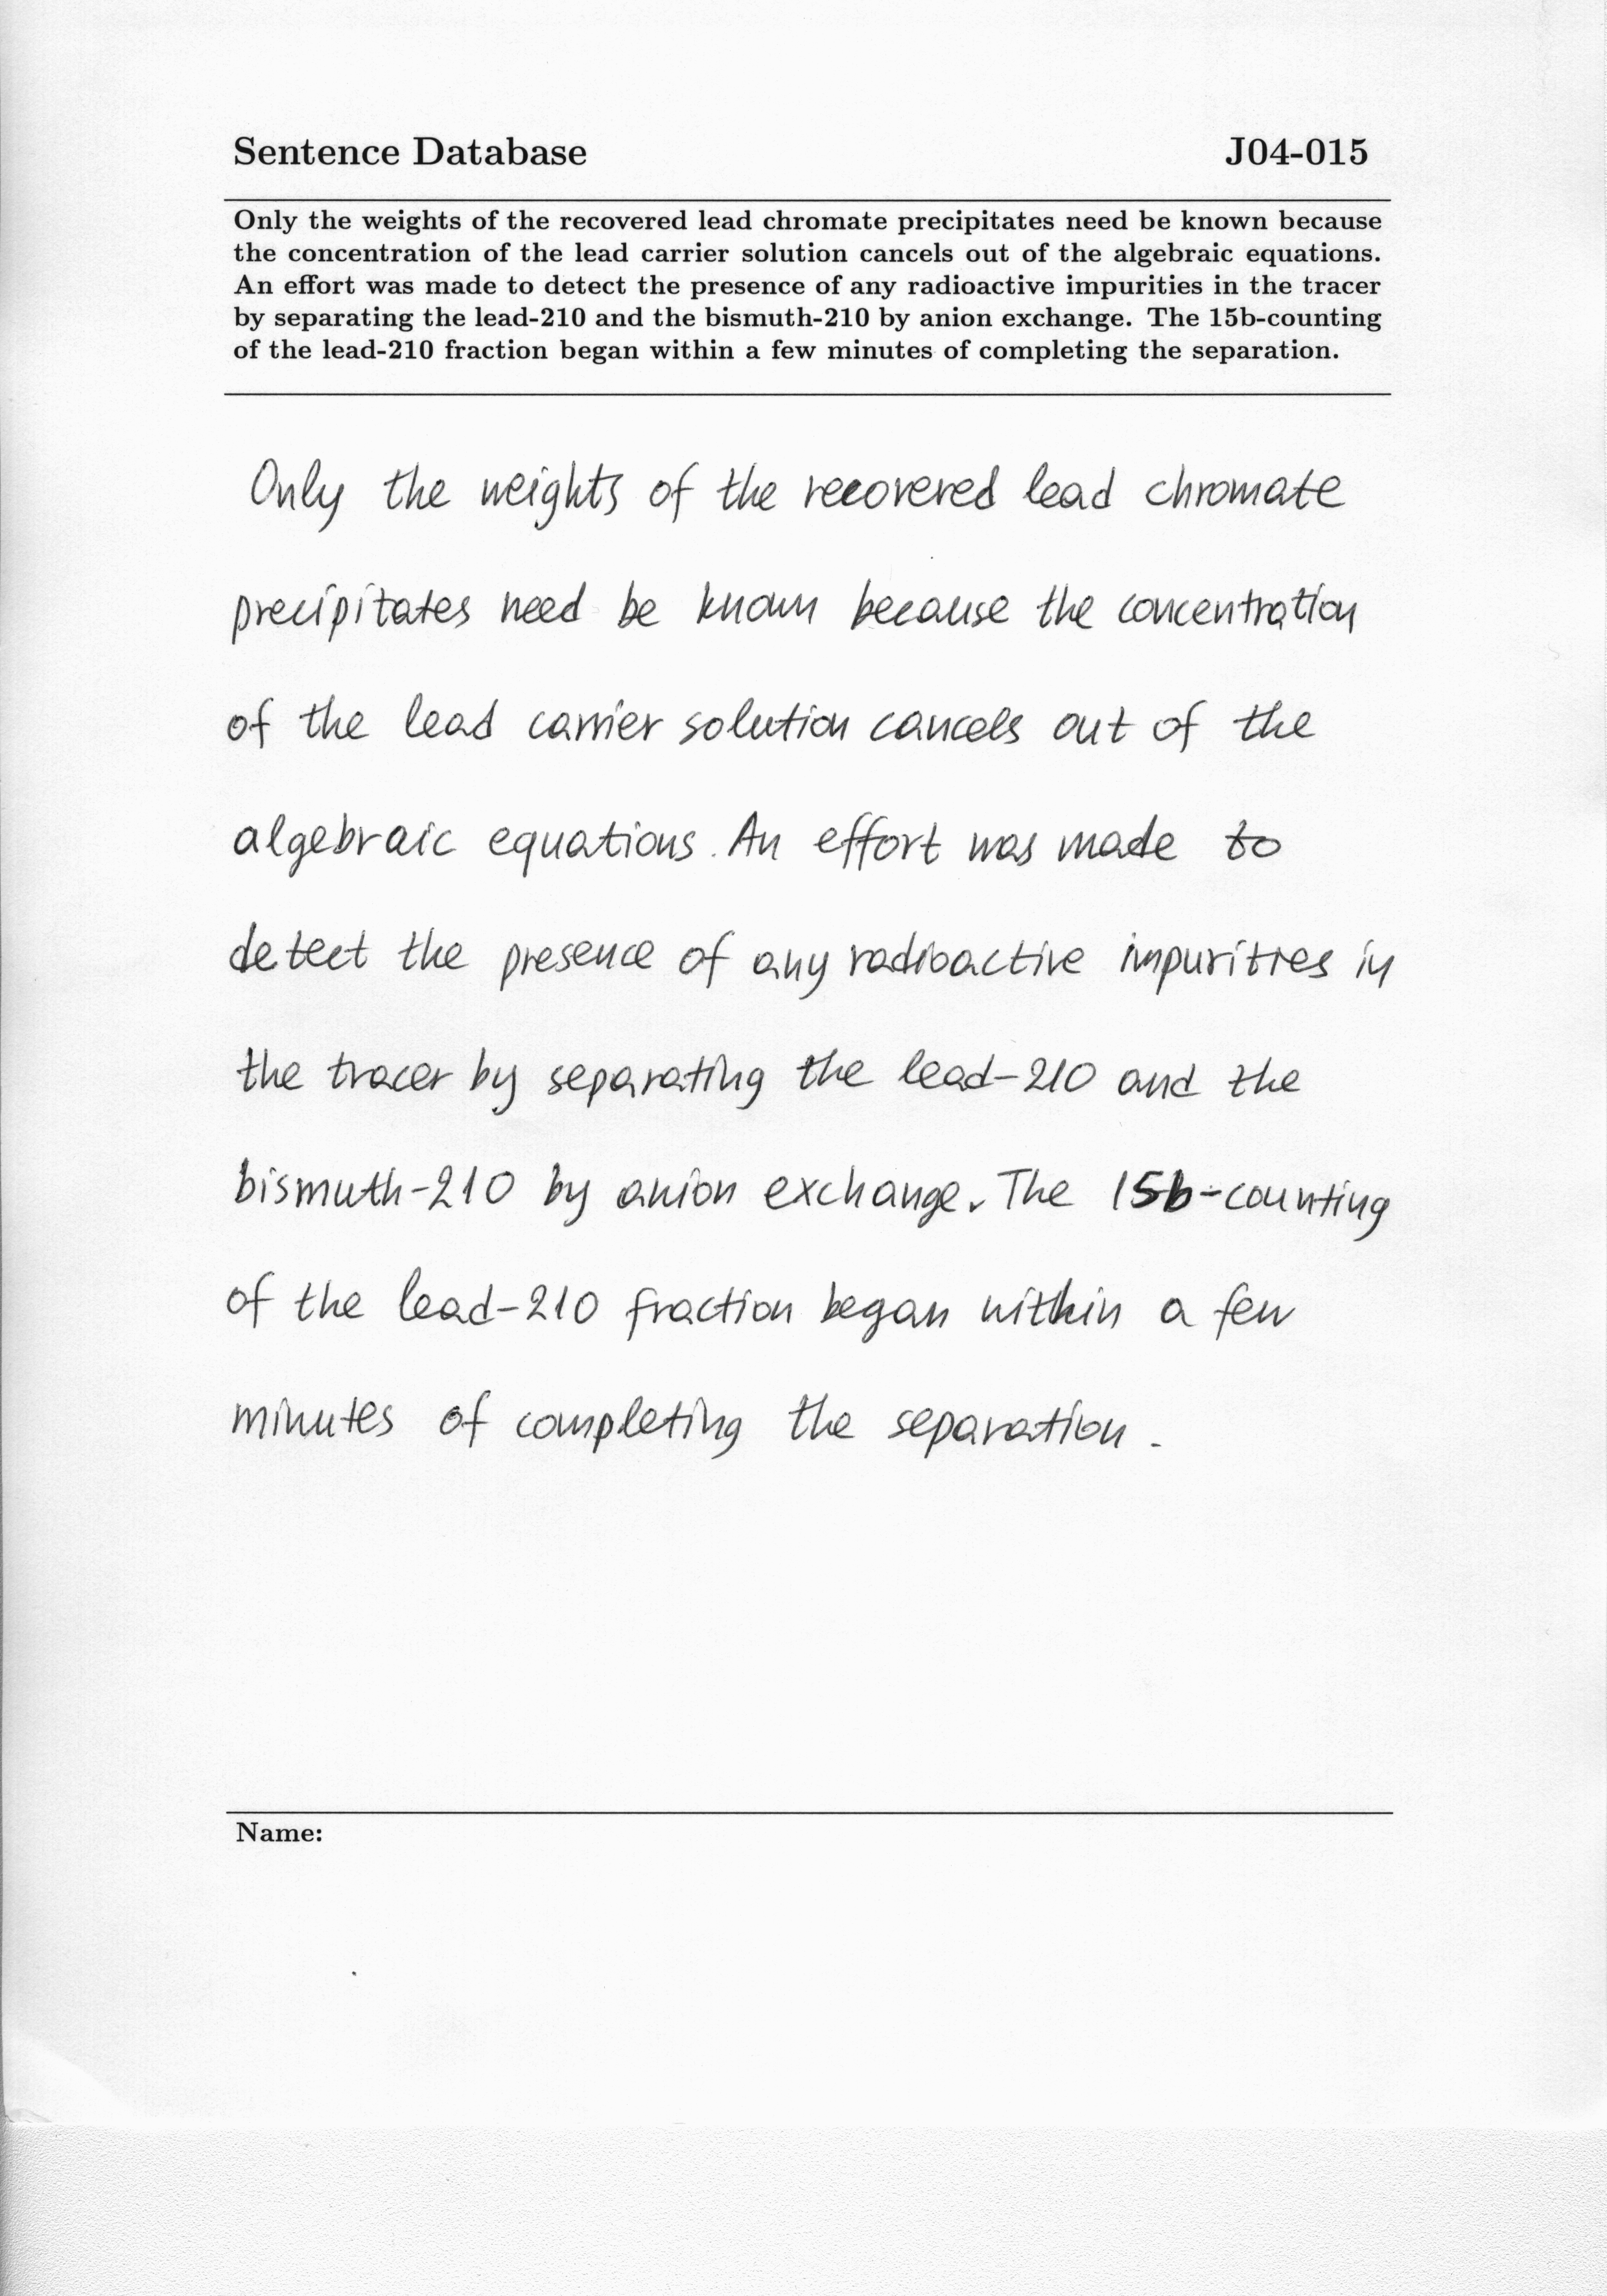 Sentence Database J04-015
Only the weights of the recovered lead chromate precipitates need be known because
the concentration of the lead carrier solution cancels out of the algebraic equations.
An effort was made to detect the presence of any radioactive impurities in the tracer
by separating the lead-210 and the bismuth-210 by anion exchange. The 15b-counting
of the lead-210 fraction began within a few minutes of completing the separation.
Only the weights of the recovered lead chromate
precipitates need be known because the concentration
of the lead carrier solution cancels out of the
algebraic equations. An effort was made to
detect the presence of any radioactive impurities in
the tracer by separating the lead-210 and the
bismuth-210 by anion exchange. The 15b-counting
of the lead-210 fraction began within a few
minutes of completing the separation.
Name: